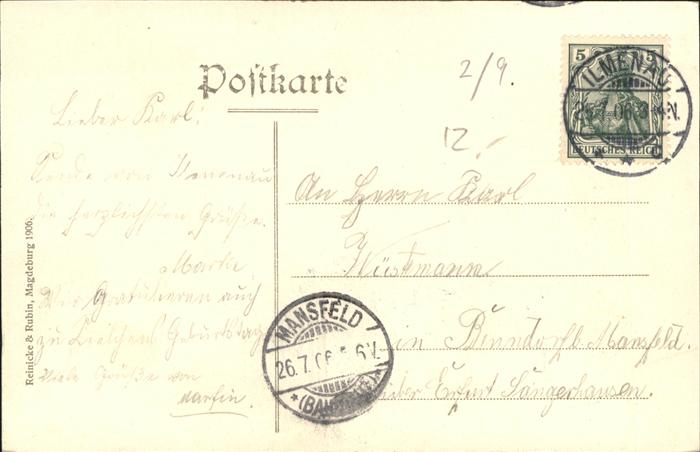 Postkarte
2/9.
12.-
5 5
DEUTSCHES REICH
ILMENAU
25.7.06
Lieber Karl!
Sende von Ilmenau
die herzlichsten Grüße.
Wir Gratulieren auch
zu Geburtstag
Viele Grüße von
An Herrn Karl
Wüstmann
in Benndorf b. Mansfeld.
über Erfurt Sangerhausen.
MANSFELD
26.7.06 6-V.
Reinicke & Rubin, Magdeburg 1906.